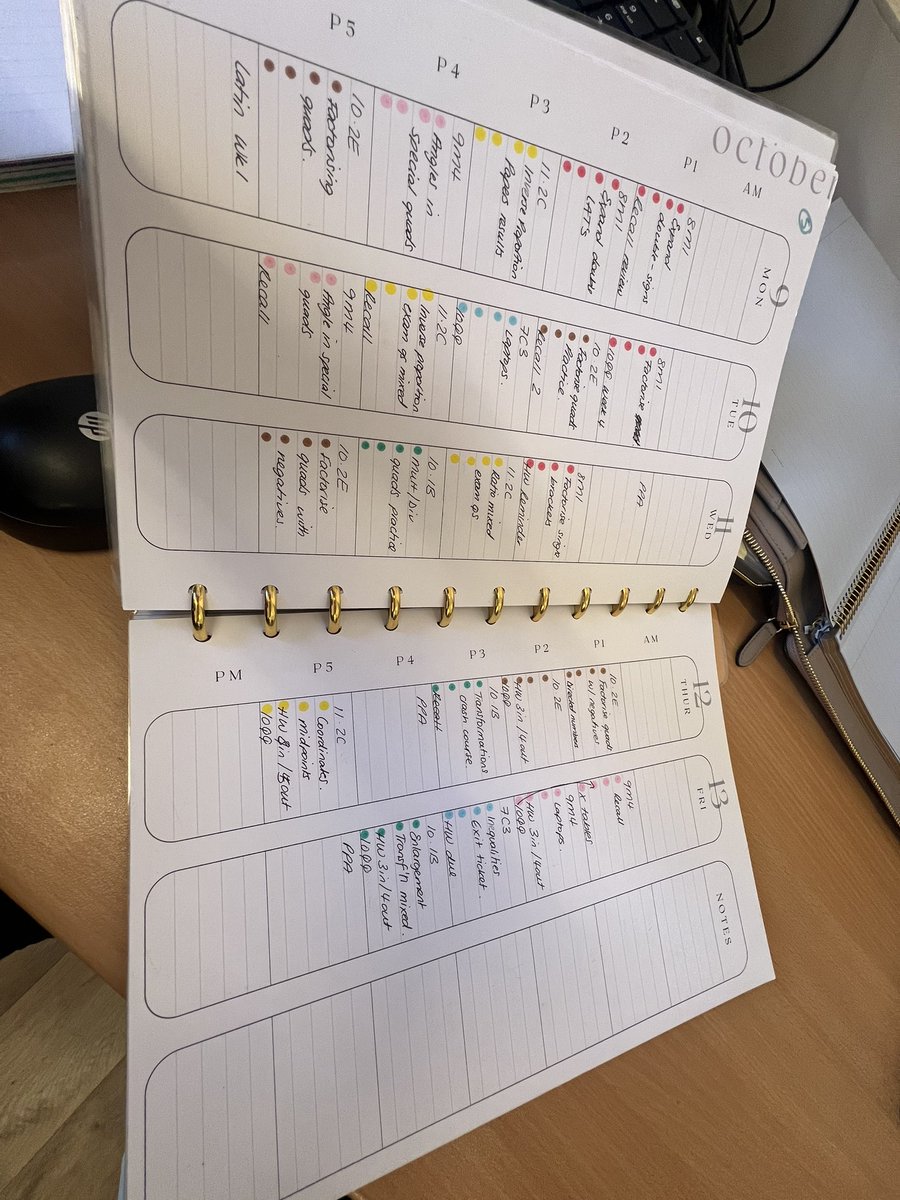 October
5
AM
P1
P2
P3
P4
P5
9
MON
8M1
Expand
double - sign
Recall review
8M1
Expand double
LAT's
11.2C
Inverse Proportion
Papers results
9M4
Angles in
special quads
10.2E
Factorising
quads.
Latin wk1
10
TUE
8M1.
Factorise
10QQ week 4
10.2E
Factorise quads
Practice.
Recall 2
7C3
Laptops.
10QQ
11.2C
Inverse proportion
exam qs mixed
Recall
9M4
Angle in special
quads
Recall
11
WED
PPA
8M1
Factorise single
brackets
HW Reminder
11.2C
Ratio mixed
exam qs
10.1B
Mult/Div
quads practice
10.2E
Factorise
quads with
negatives.
AM
P1
P2
P3
P4
P5
PM
12
THUR
10.2E
Factorise quads
w/ negatives
10.2E
HW 3in/4out
10QQ
10.1B
Transformations
crash course.
PPA
11.2C
Coordinates.
midpoints
10QQ
13
FRI
9M4
Recall
x tables
9M4
Laptops.
HW 3in/4out
10QQ
7C3
Inequalities
Exit ticket.
HW due
10.1B
Enlargement
Transf'n mixed.
HW 3in/4out
10QQ
PPA
NOTES
hp